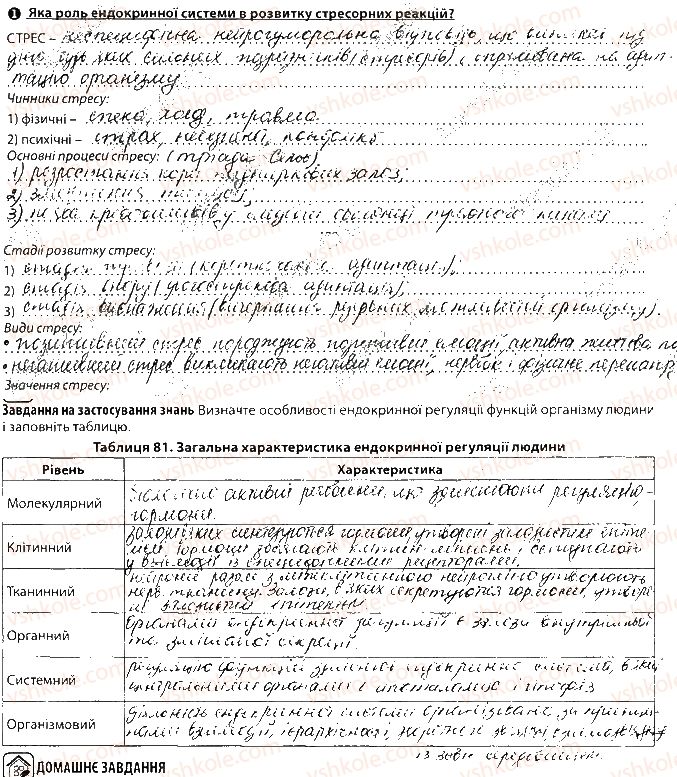 1 Яка роль ендокринної системи в розвитку стресорних реакцій?
СТРЕС – неспецифічна нейрогуморальна відповідь, що виникає під
дією будь-яких сильних подразників (стресорів) і спрямована на адап-
тацію організму
Чинники стресу:
1) фізичні – спека, холод, травма
2) психічні – страх,
Основні процеси стресу: (тріада Сельє)
1) розростання кори наднирникових залоз;
2) зменшення тимуса;
3) поява крововиливів у слизовій оболонці
Стадії розвитку стресу:
1) стадія тривоги (короткочасна адаптація),
2) стадія опору (довгострокова адаптація);
3) стадія виснаження (вичерпання можливостей організму).
Види стресу:
• позитивний стрес породжують позитивні емоції, активна життєва по
• негативний стрес викликають негативні емоції, нервове і фізичне перенапр
Значення стресу:
Завдання на застосування знань Визначте особливості ендокринної регуляції функцій організму людини
і заповніть таблицю.
Таблиця 81. Загальна характеристика ендокринної регуляції людини
Рівень Характеристика
Молекулярний Біологічно активні речовини, які здійснюють регуляцію –
гормони.
Клітинний залозистих синтезуються гормони, утворені залозистим епітелі-
єм. Гормони досягають клітин-мішень і
у взаємодії із специфічними рецепторами.
Тканинний нейрони разом з клітинами нейроглії утворюють
нерв. тканину. Залози, в яких секретуються гормони, утворе
ні залозистим епітелієм
Органний Органами ендокринної регуляції є залози внутрішньої
та змішаної секреції
Системний регуляцію функцій здійснює ендокринна система, в якій
центральними органами є гіпоталамус і гіпофіз
Організмовий діяльність ендокринної системи організована за принци-
пами взаємодії, ієрархічності, зворотного зв'язку
із зовн. середовищем
ДОМАШНЄ ЗАВДАННЯ